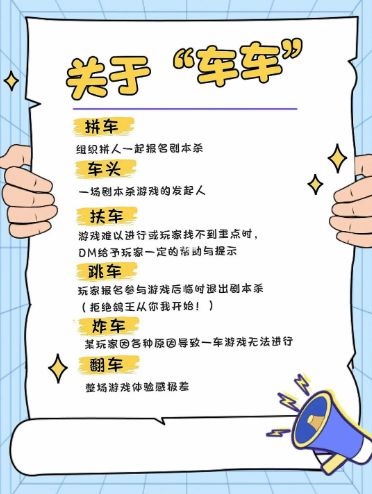 关于“车车”
拼车
组织拼人一起报名剧本杀
车头
一场剧本杀游戏的发起人
扶车
游戏难以进行或玩家找不到重点时，
DM给予玩家一定的帮助与提示
跳车
玩家报名参与游戏后临时退出剧本杀
（拒绝鸽王从你我开始！）
炸车
某玩家因各种原因导致一车游戏无法进行
翻车
整场游戏体验感极差